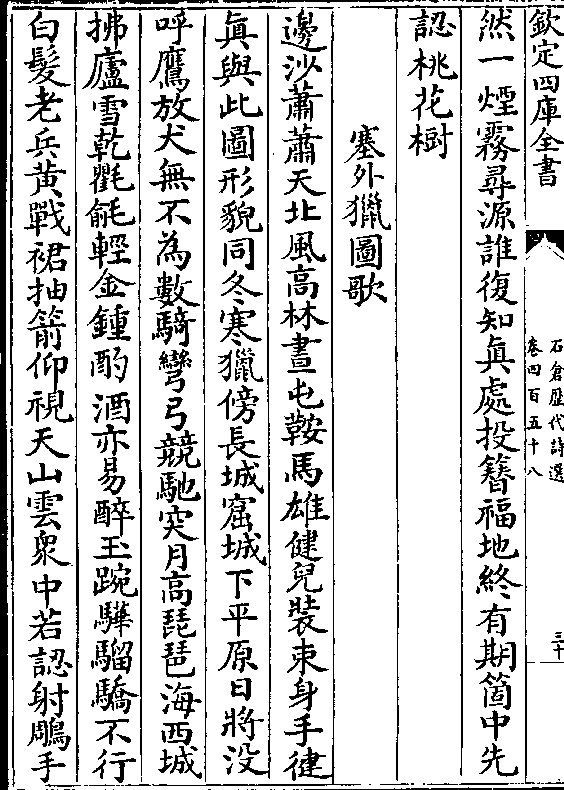 欽定四庫全書
石倉歷代詩選
卷四百五十八
三十
然一煙霧尋源誰復知真處投簮福地終有期箇中先
認桃花樹
塞外獵圖歌
邊沙蕭蕭天北風高林晝屯鞍馬雄健兒裝束身手徤
真與此圖形貌同冬寒獵傍長城窟城下平原日將没
呼鷹放犬無不為數騎彎弓競馳突月高琵琶海西城
拂廬雪乾氍毹輕金鍾酌酒亦易醉玉踠驊騮驕不行
白髮老兵黄戰裙抽箭仰視天山雲衆中若認射鵰手